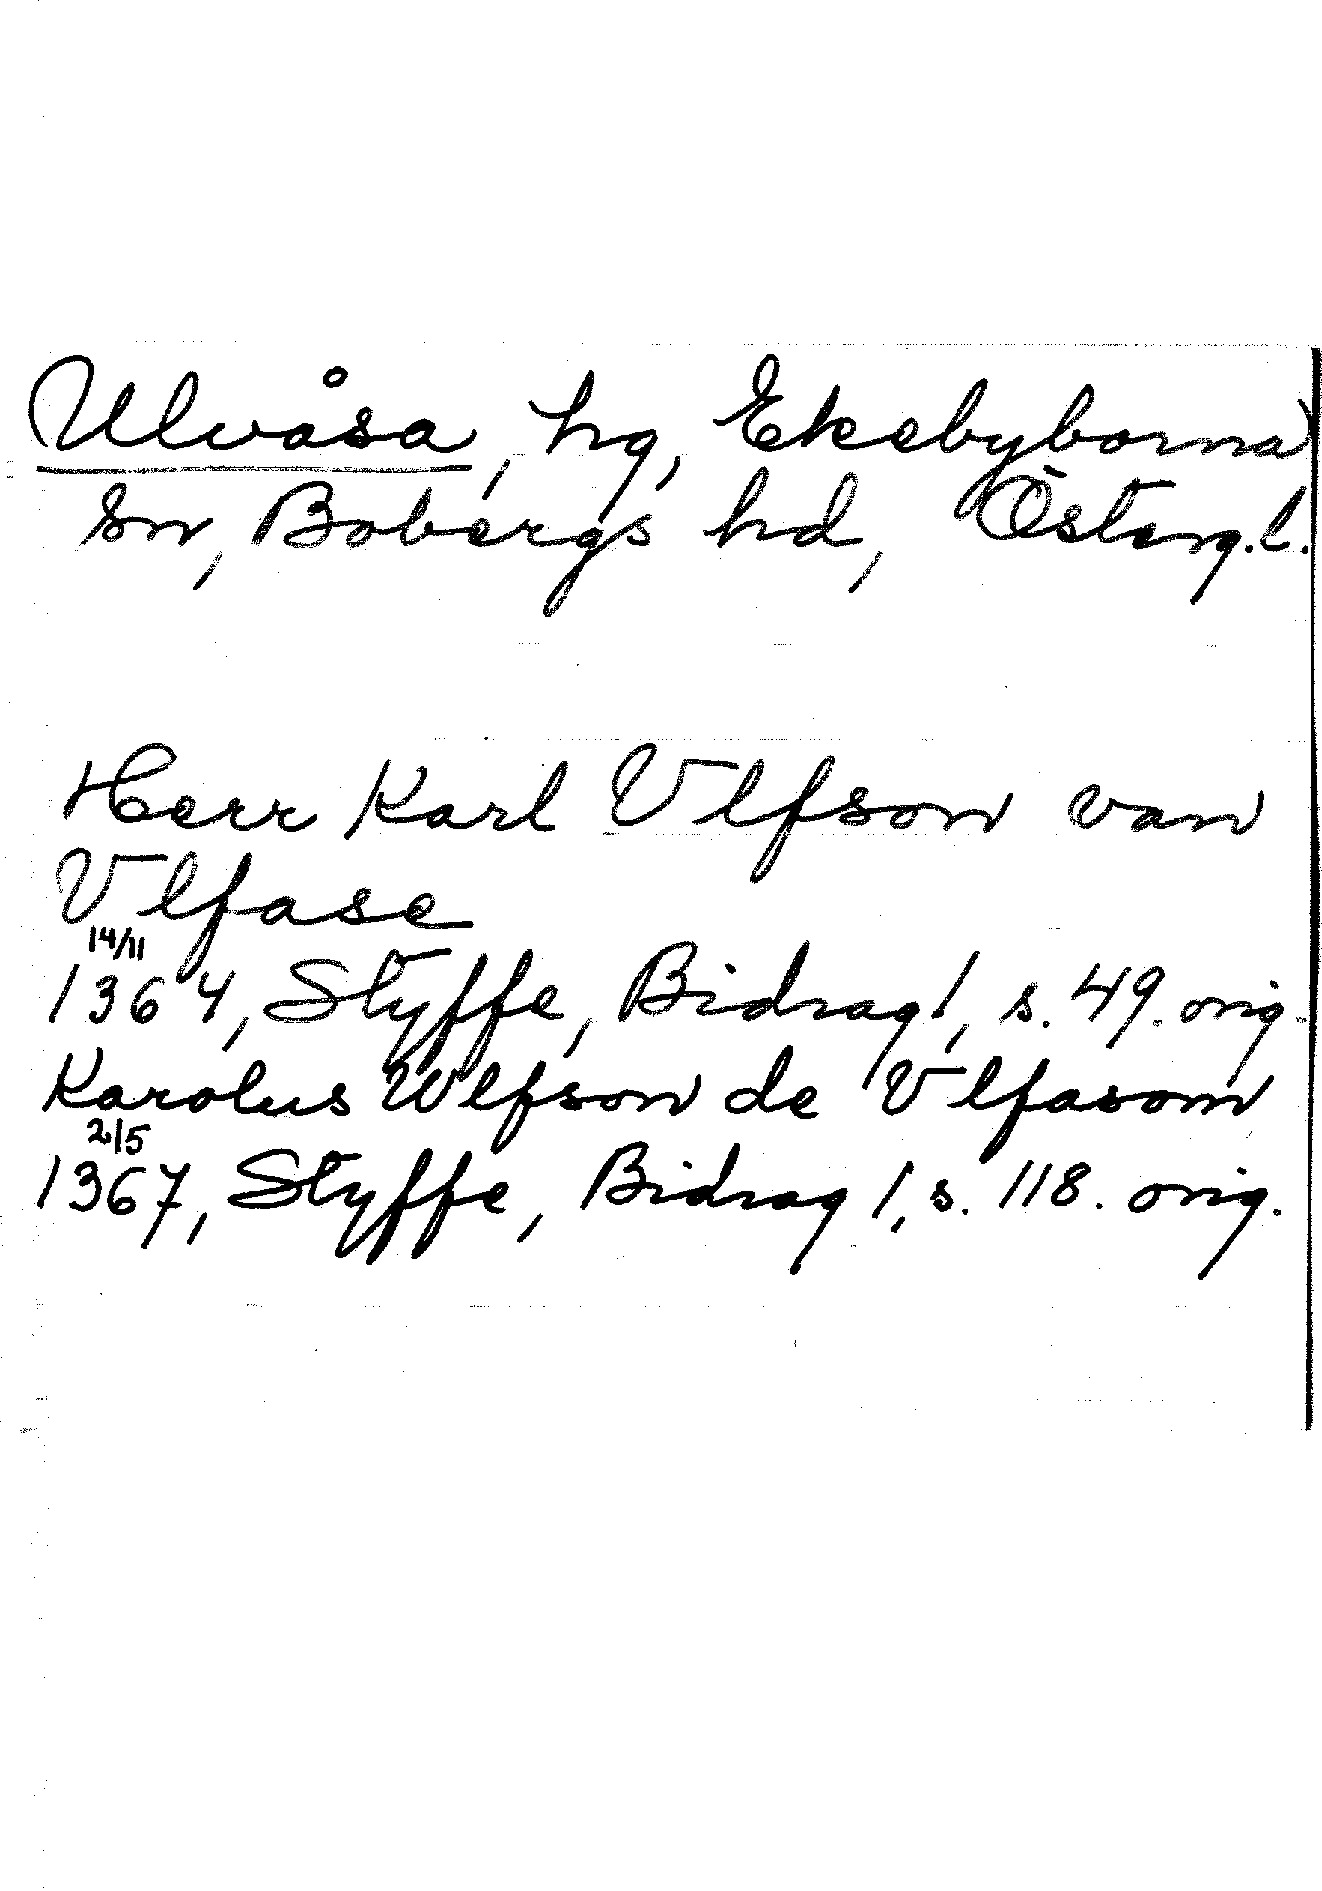 Ulvåsa, hg, Ekebyborna
sn, Bobergs hd, Österg.l.
Herr Karl Vlfson van
Vlfase
14/11
1364, Styffe, Bidrag 1, s. 49. orig.
Karolus Wlfson de Vlfasom
2/5
1367, Styffe, Bidrag 1, s. 118. orig.